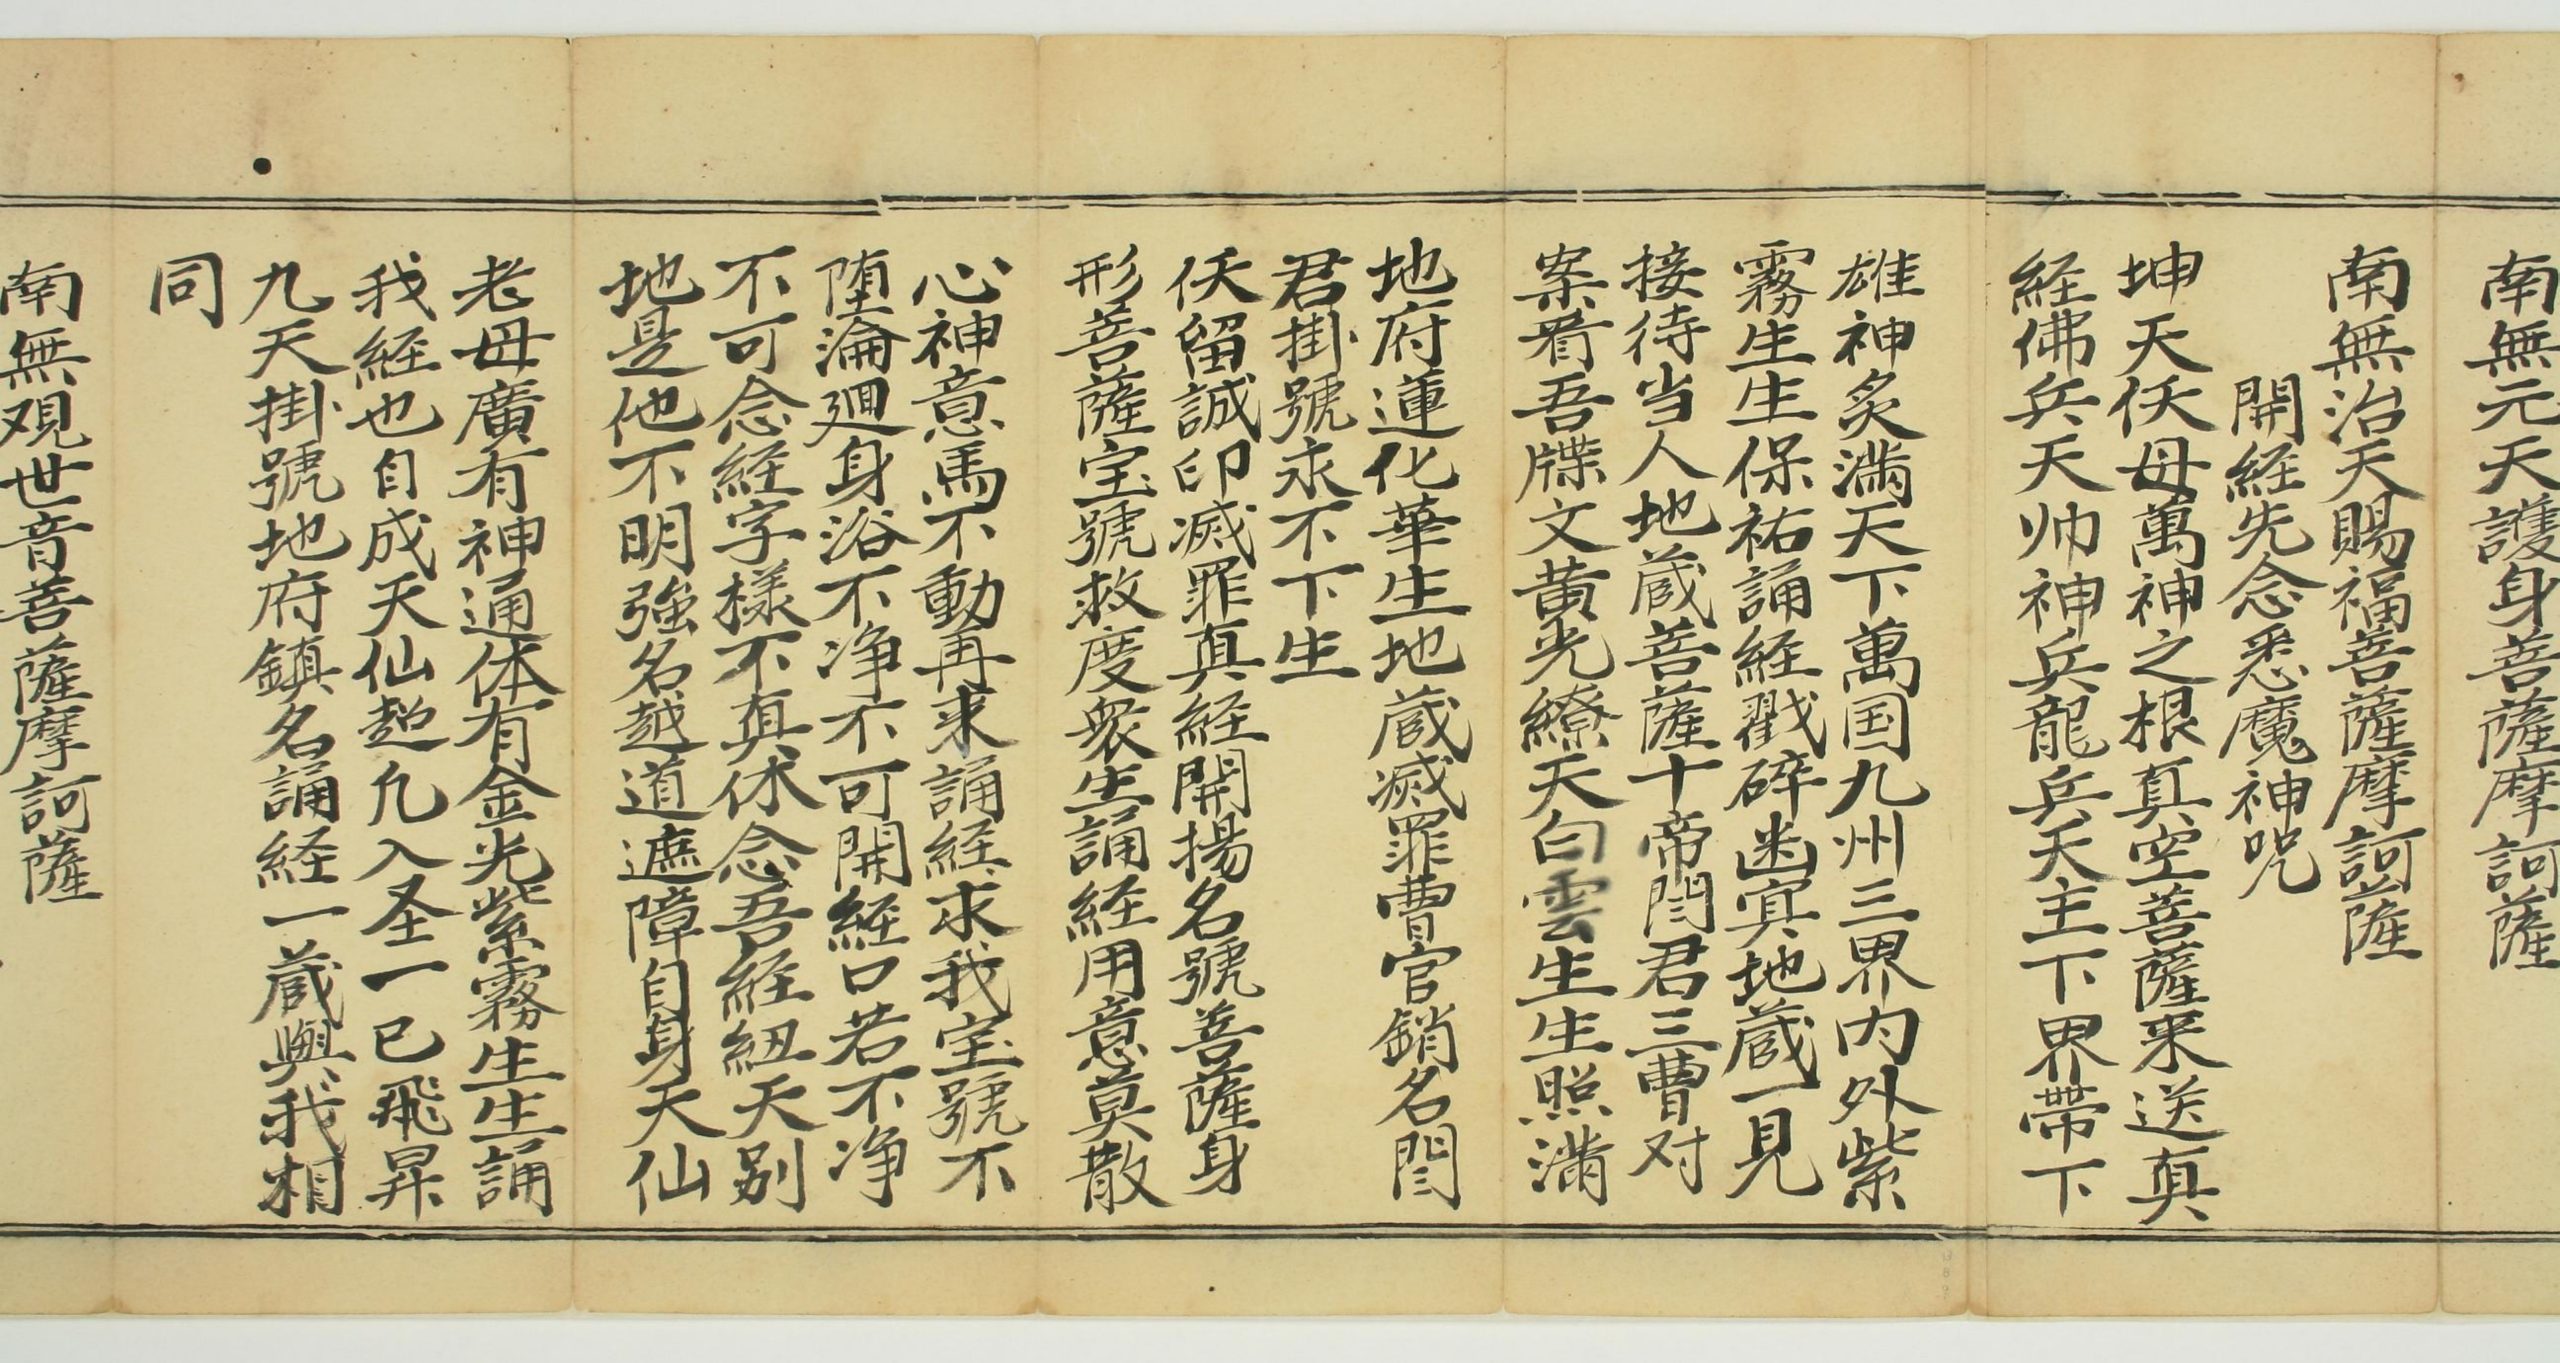 南無元天護身菩薩摩訶薩
南無治天賜福菩薩摩訶薩
開経先念悉魔神咒
坤天伏母萬神之根真空菩薩来送真
経佛兵天帅神兵龍兵天主下界帶下
雄神炙滿天下萬国九州三界内外紫
霧生生保祐誦経戳碎幽冥地蔵一見
接待当人地蔵菩薩十帝閆君三曹对
案看吾牒文黃光繚天白雲生生照滿
地府蓮化華生地蔵滅罪曹官銷名閆
君掛號永不下生
伏留誠印滅罪真経開揚名號菩薩身
形菩薩宝號救度衆生誦経用意莫散
心神意馬不動再来誦経求我宝號不
堕淪廻身浴不净不可開経口若不净
不可念経字樣不真休念吾経紐天别
地是他不明強名越道遮障自身天仙
老母廣有神通体有金光紫霧生生誦
我経也自成天仙超凢入圣一已飛昇
九天掛號地府鎮名誦経一蔵與我相
同
南無观世音菩薩摩訶薩